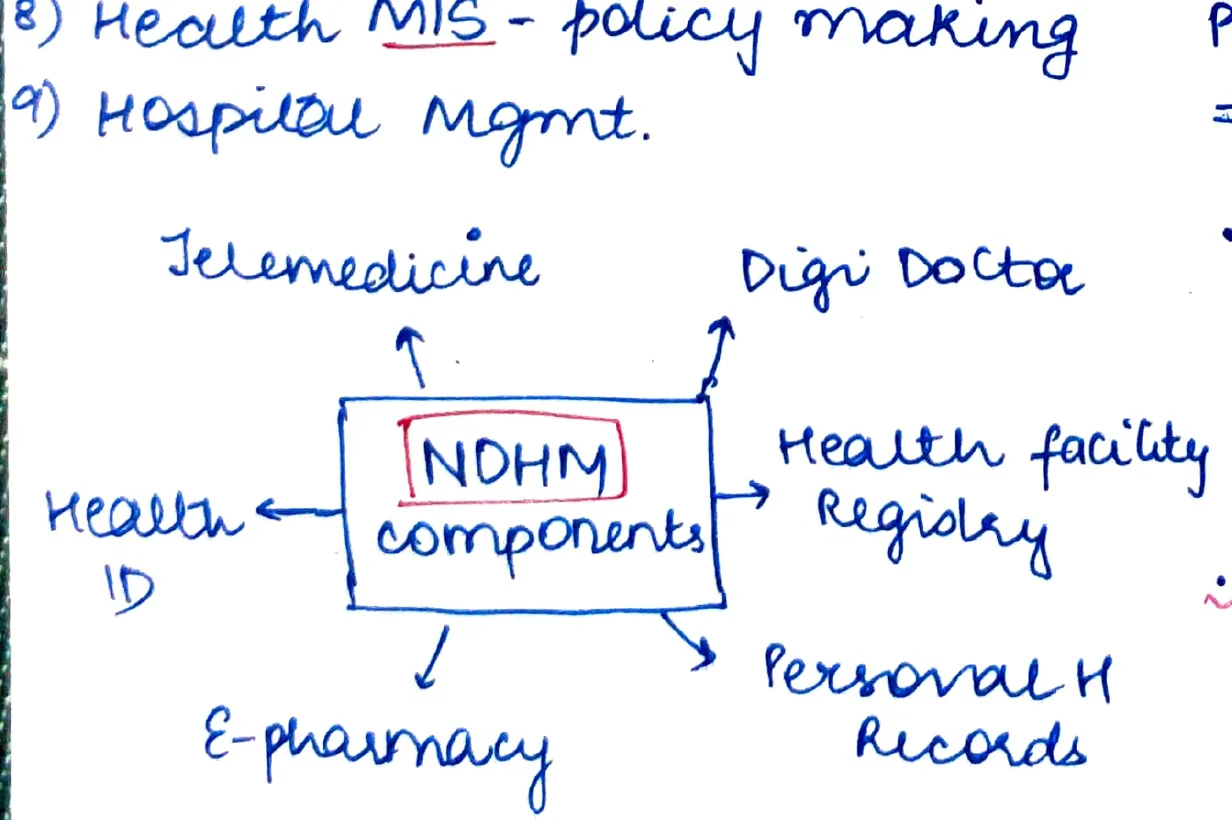 8) Health MIS - policy making
9) Hospital Mgmt.
Telemedicine
Digi Doctor
NDHM
components
Health facility
Registry
Health
ID
Personal H
Records
E-pharmacy